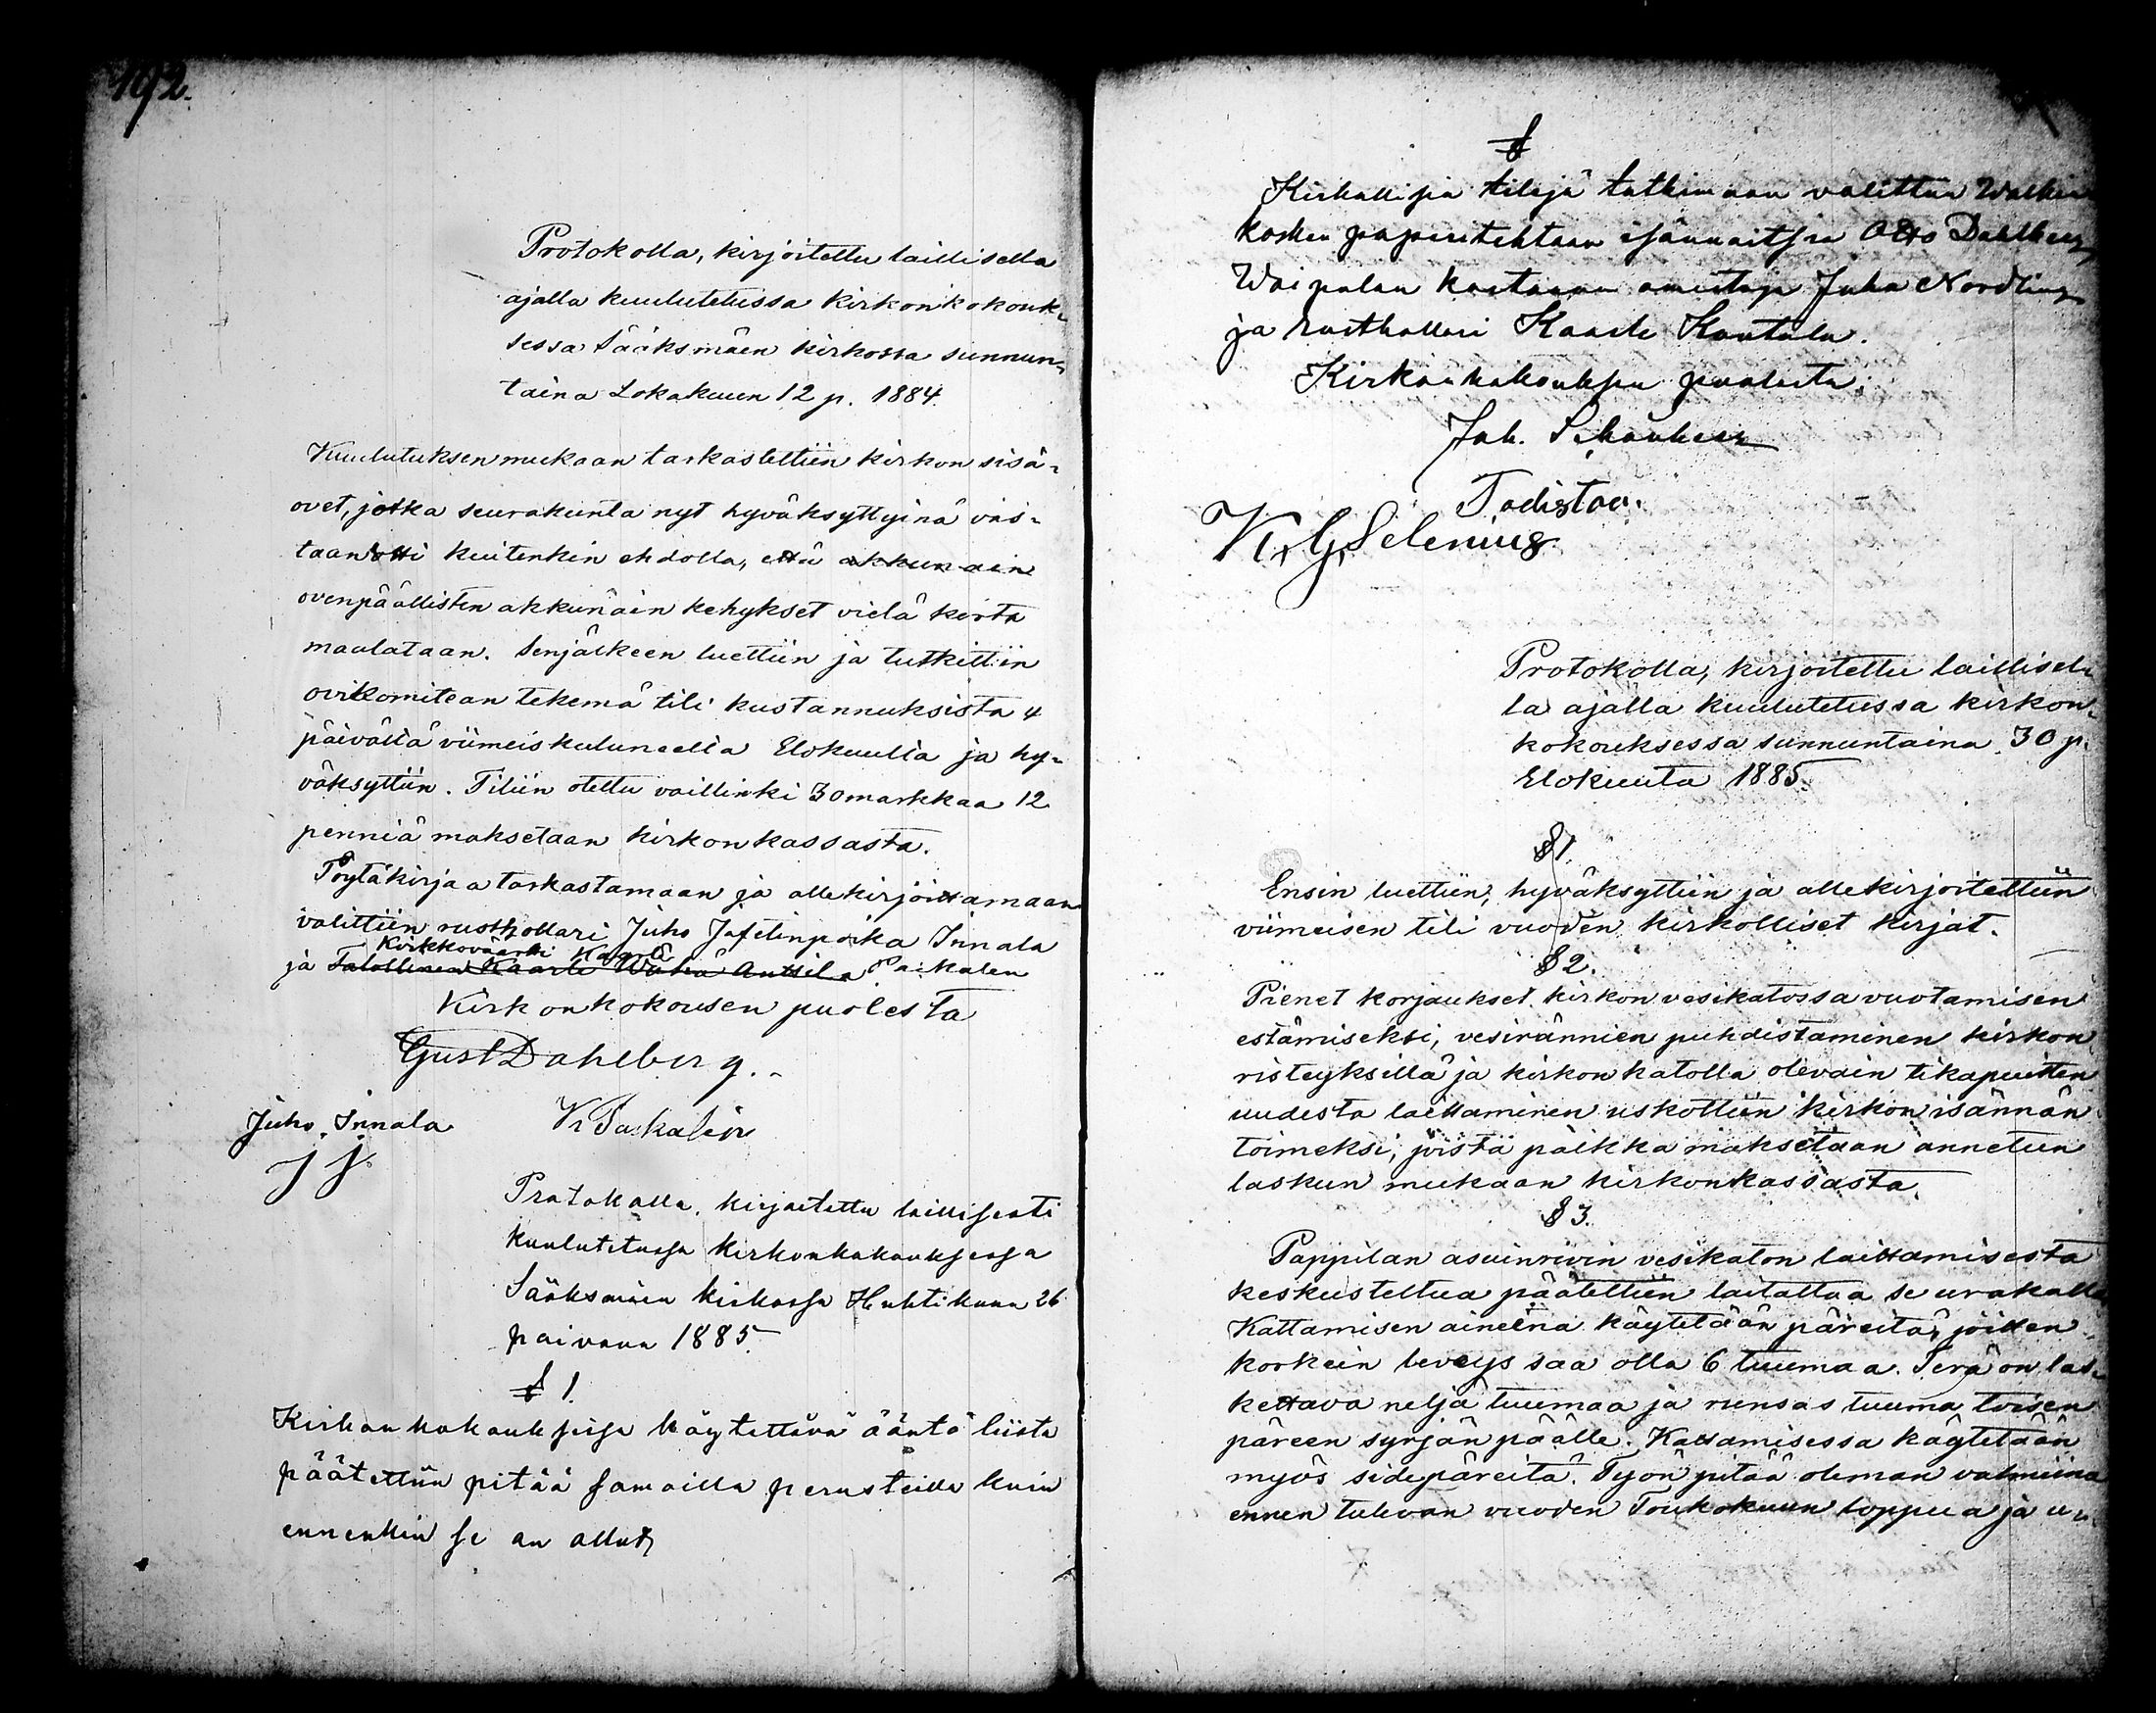 192.
Protokolla, kirjoitettu laillisella
ajalla kuulutetussa kirkonkokouk-
sessa Sääksmäen kirkossa sunnun-
taina Lokakuun 12 p. 1884.
Kuulutuksen mukaan tarkastettiin kirkon sisä-
ovet, jotka seurakunta nyt hyväksyttyinä vas-
taan otti kuitenkin ehdolla, että akkunain
ovenpäällisten akkunain kehykset vielä kerta
maalataan. Senjälkeen luettiin ja tutkittiin
ovikomitean tekemä tili kustannuksista 4
päivältä viimeiskuluneelta Elokuulta ja hy-
väksyttiin. Tiliin otettu vaillinki 30 markkaa 12
penniä maksetaan kirkonkassasta.
Pöytäkirjaa tarkastamaan ja allekirjoittamaan
valittiin rusthollari Juho Jafetinpoika Innala
Kirkkoväärti Kaarle
ja Talollinen Kaarle Wähä Anttila Paikalen
Kirkonkokousen puolesta
Gust Dahlberg.
Juho Innala K Paikalen
J J
Protokolla, kirjoitettu laillisesti
kuulutetussa kirkonkokouksessa
Sääksmäen kirkossa Huhtikuun 26
päivänä 1885.
§ 1.
Kirkonkokouksissa käytettävä ääntö liista
päätettiin pitää samoilla perusteilla kuin
ennenkin se on ollut,
§
Kirkollisia tilejä tutkimaan valittiin Walkia
kosken paperitehtaan isännöitsiä Otto Dahlberg,
Woipalan kartanon omistaja Juho Nordling
ja rusthollari Kaarle Kantala.
Kirkonkokouksen puolesta,
Joh. Schönberg
Todistaa.
K. G. Selenius
Protokolla, kirjoitettu laillisel-
la ajalla kuulutetussa kirkon-
kokouksessa sunnuntaina 30 p.
Elokuuta 1885.
§ 1.
Ensin luettiin, hyväksyttiin ja allekirjoitettiin
viimeisen tili vuoden kirkolliset kirjat.
§ 2.
Pienet korjaukset kirkon vesikatossa vuotamisen
estämiseksi, vesirännien puhdistaminen kirkon
risteyksillä ja kirkon katolla olevain tikapuitten
uudesta laittaminen uskottiin kirkon isännän
toimeksi, joista palkka maksetaan annetun
laskun mukaan kirkonkassasta.
§ 3.
Pappilan asuinrivin vesikaton laittamisesta
keskusteltua päätettiin laitattaa se urakalla
Kattamisen aineena käytetään päreitä, joitten
korkein leveys saa olla 6 tuumaa. Terä on las-
kettava neljä tuumaa ja runsas tuuma toisen
päreen syrjän päälle. Kattamisessa käytetään
myös sidepäreitä. Työn pitää oleman valmiina
ennen tulevan vuoden Toukokuun loppua ja u-